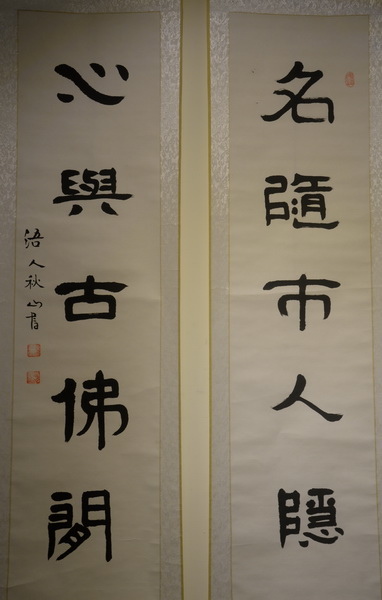 名隨市人隱
心與古佛閒
浯人秋山書